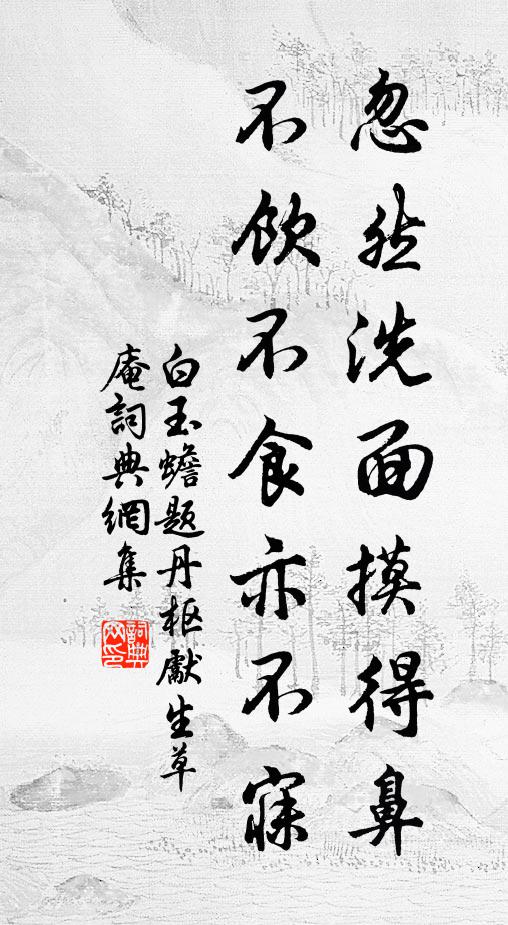 忽然洗面摸得鼻
不飲不食亦不寐
白玉蟾題丹樞獻生草
庵詞典網集
詞典
网印